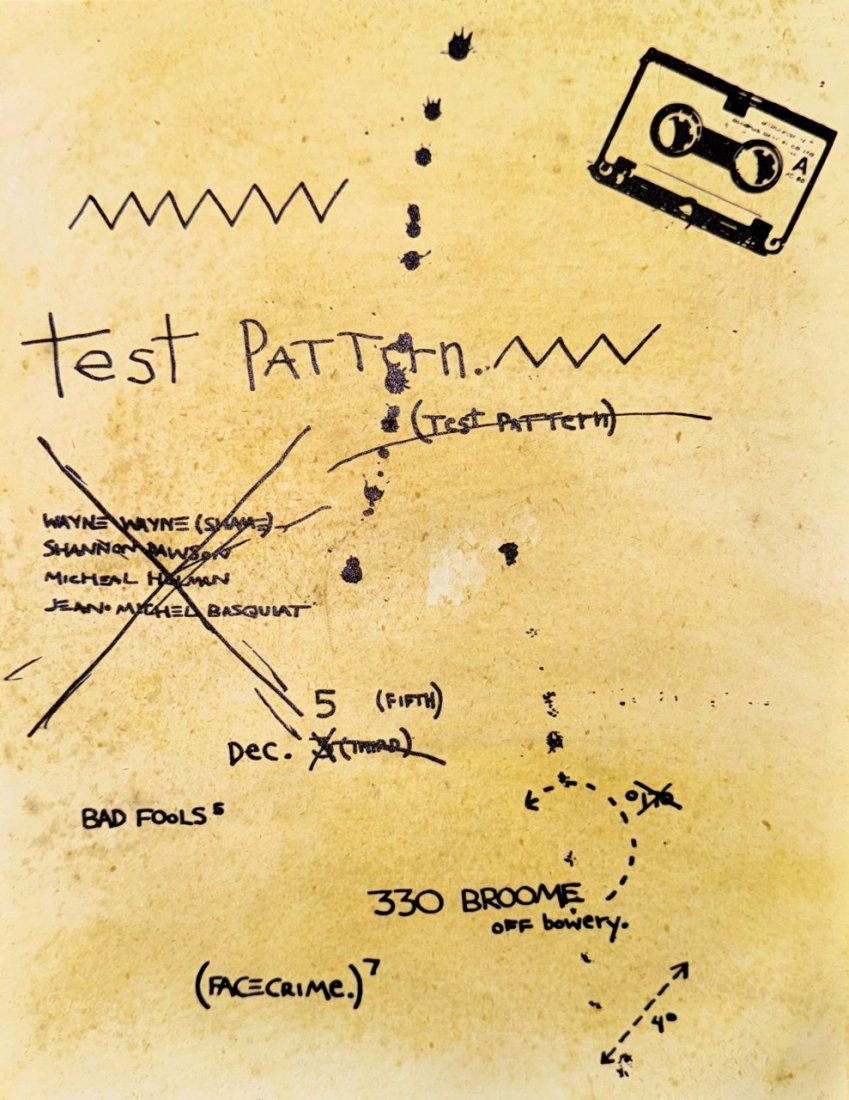 A
Test PATTern.
(Test PATTern)
WAYNE WAYNE (SHAME)
SHANNON DAWSON
MICHEAL HOLMAN
JEAN-MICHEL BASQUIAT
5 (FIFTH)
Dec. 3 (THIRD)
BAD FOOLS⁵
330 BROOME
OFF bowery.
(FACECRIMe.)⁷
4°